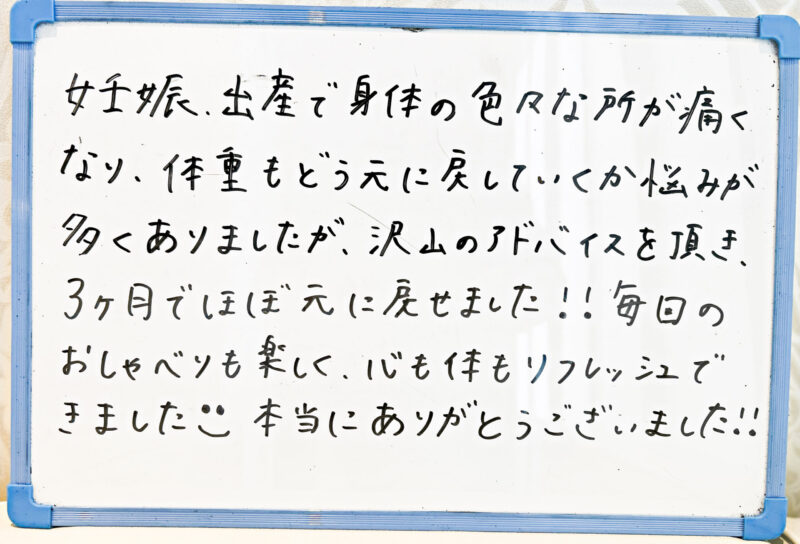 妊娠、出産で身体の色々な所が痛く
なり、体重もどう元に戻していくか悩みが
多くありましたが、沢山のアドバイスを頂き、
3ヶ月でほぼ元に戻せました!!毎回の
おしゃべりも楽しく、心も体もリフレッシュで
きました☺本当にありがとうございました!!